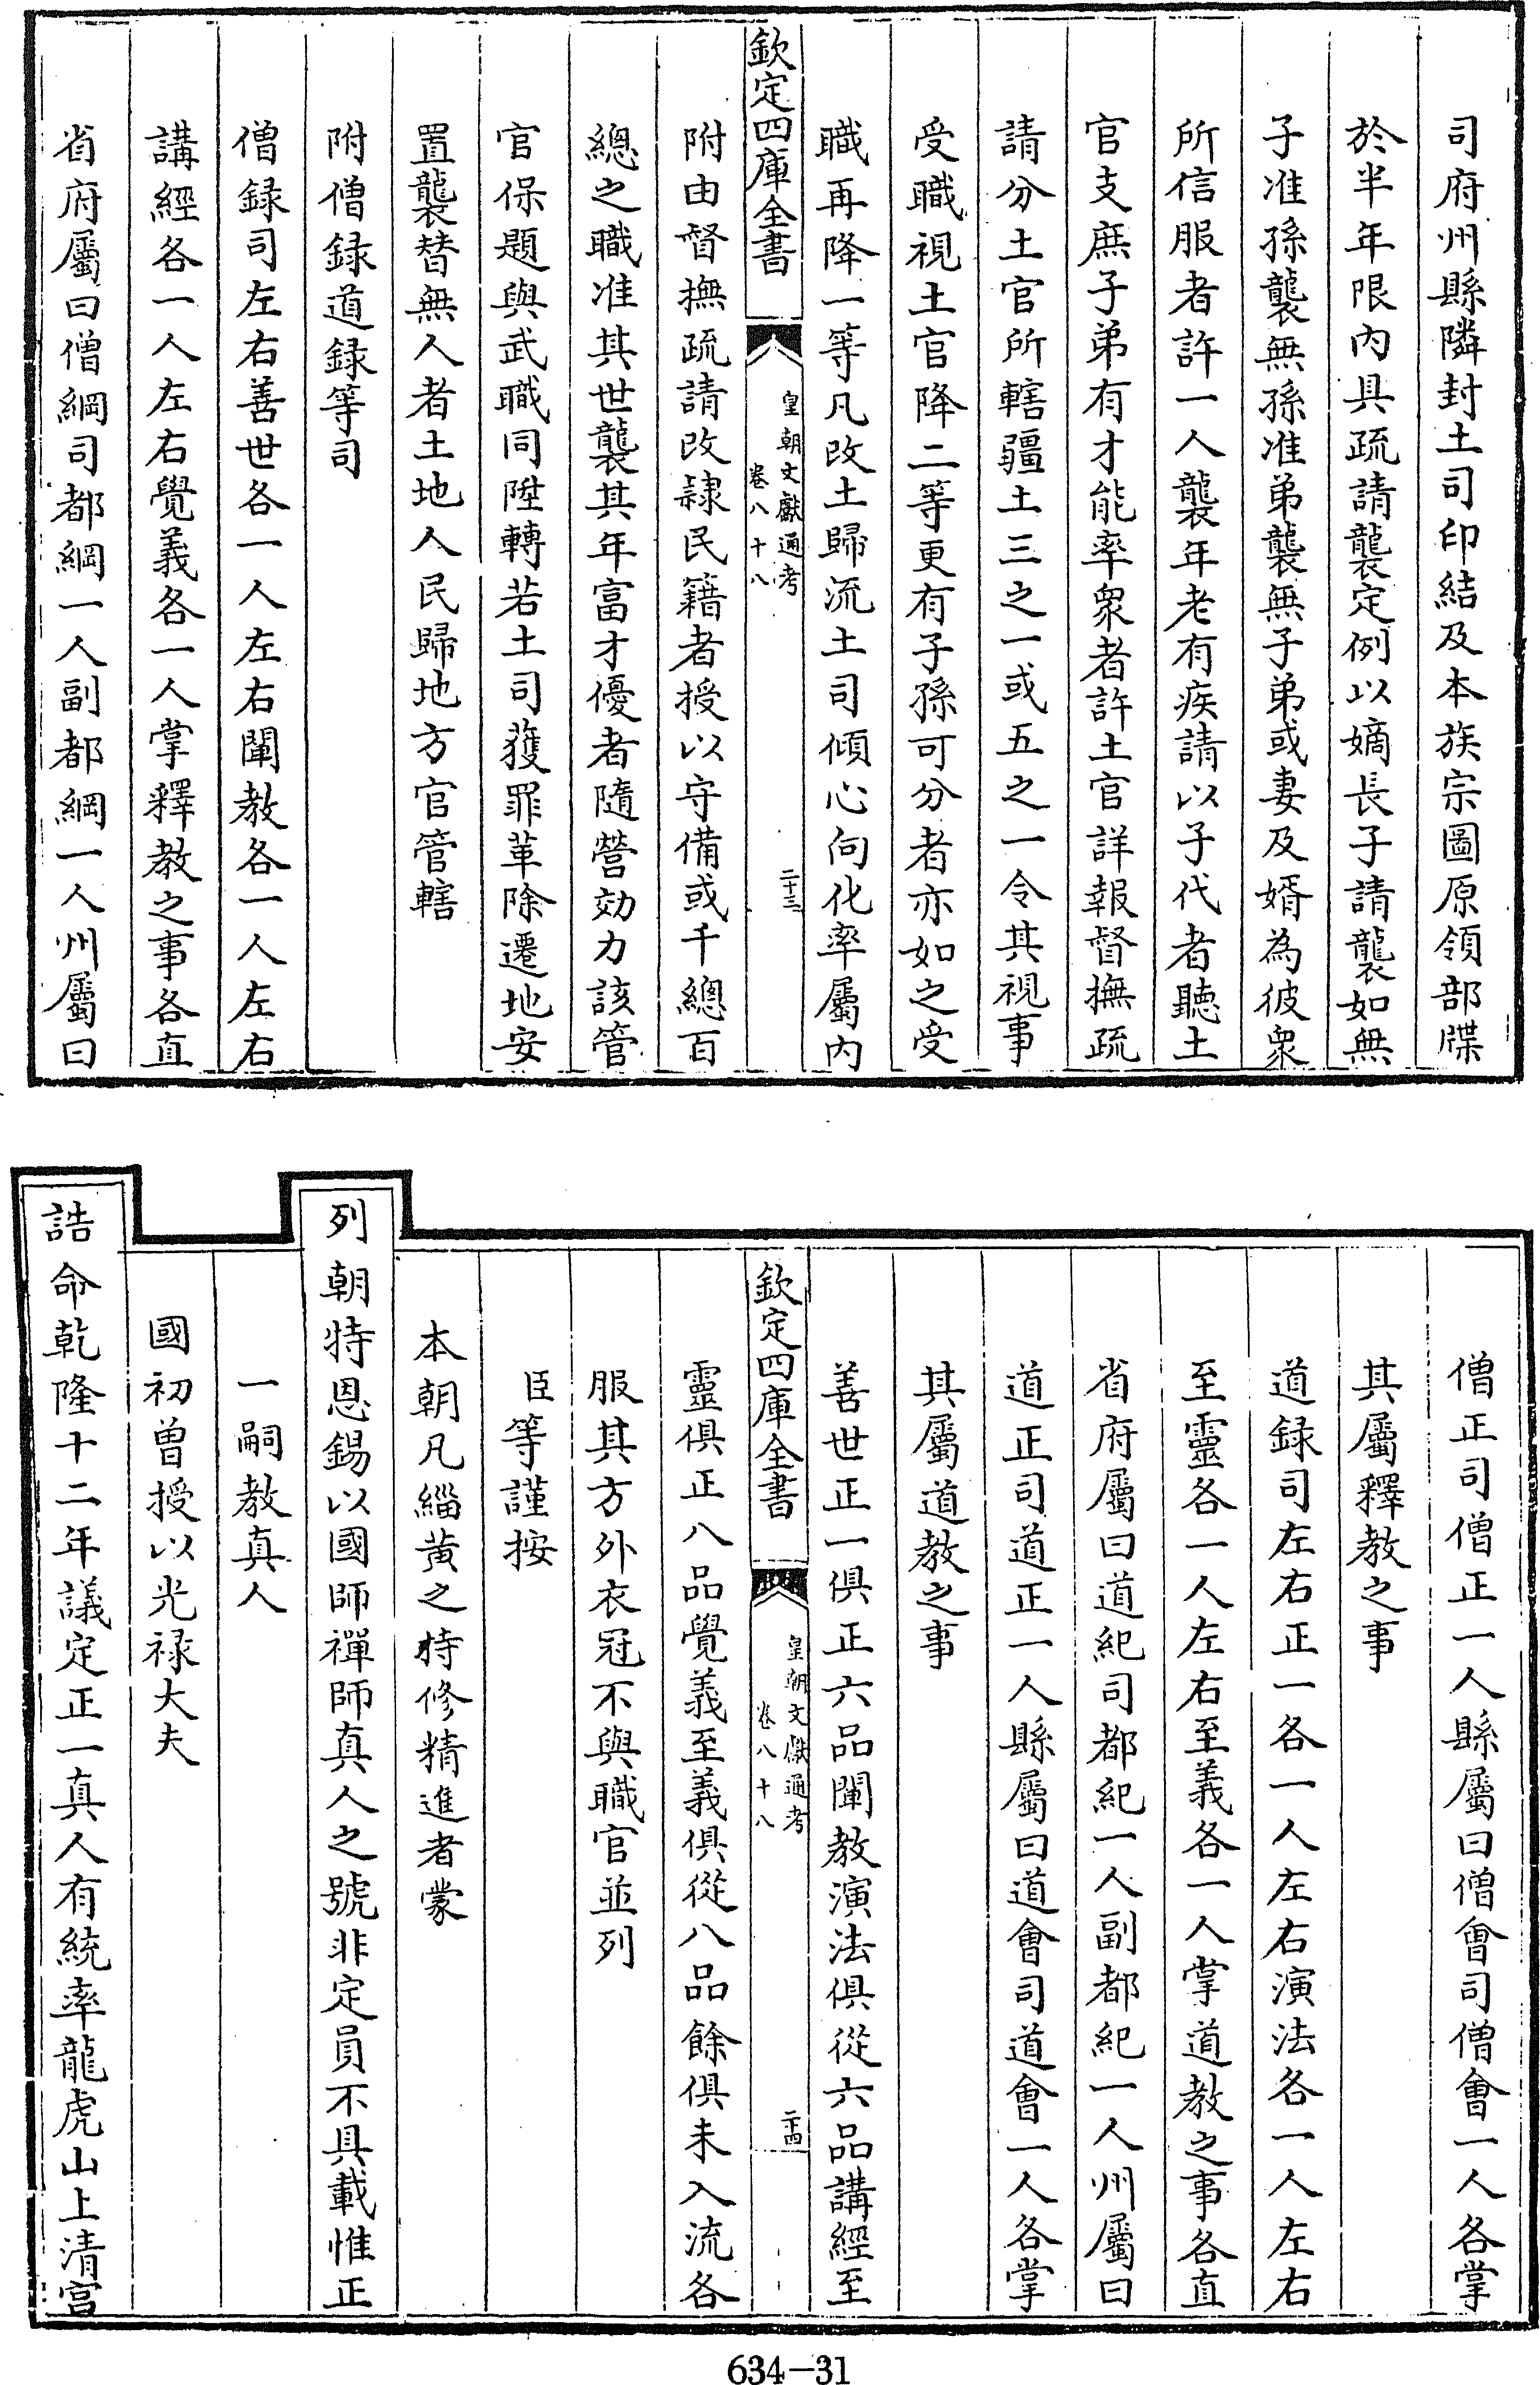 司府州縣隣封土司印結及本族宗圖原領部牒
於半年限內具疏請襲定例以嫡長子請襲如無
子准孫襲無孫准弟襲無子弟或妻及婿為彼衆
所信服者許一人襲年老有疾請以子代者聽土
官支庶子弟有才能率衆者許土官詳報督撫疏
請分土官所轄疆土三之一或五之一令其視事
受職視土官降二等更有子孫可分者亦如之受
職再降一等凡改土歸流土司傾心向化率屬內
欽定四庫全書
皇朝文獻通考
卷八十八
二十三
附由督撫疏請改隸民籍者授以守備或千總百
總之職准其世襲其年富才優者隨營効力該管
官保題與武職同陞轉若土司獲罪革除遷地安
置襲替無人者土地人民歸地方官管轄
附僧録道録等司
僧録司左右善世各一人左右闡教各一人左右
講經各一人左右覺義各一人掌釋教之事各直
省府屬曰僧綱司都綱一人副都綱一人州屬曰
僧正司僧正一人縣屬曰僧會司僧會一人各掌
其屬釋教之事
道録司左右正一各一人左右演法各一人左右
至靈各一人左右至義各一人掌道教之事各直
省府屬曰道紀司都紀一人副都紀一人州屬曰
道正司道正一人縣屬曰道會司道會一人各掌
其屬道教之事
善世正一俱正六品闡教演法俱從六品講經至
欽定四庫全書
皇朝文獻通考
卷八十八
二十四
靈俱正八品覺義至義俱從八品餘俱未入流各
服其方外衣冠不與職官並列
臣等謹按
本朝凡緇黃之特修精進者蒙
列朝特恩錫以國師禪師真人之號非定員不具載惟正
一嗣教真人
國初曾授以光祿大夫
誥命乾隆十二年議定正一真人有統率龍虎山上清宮
634-31